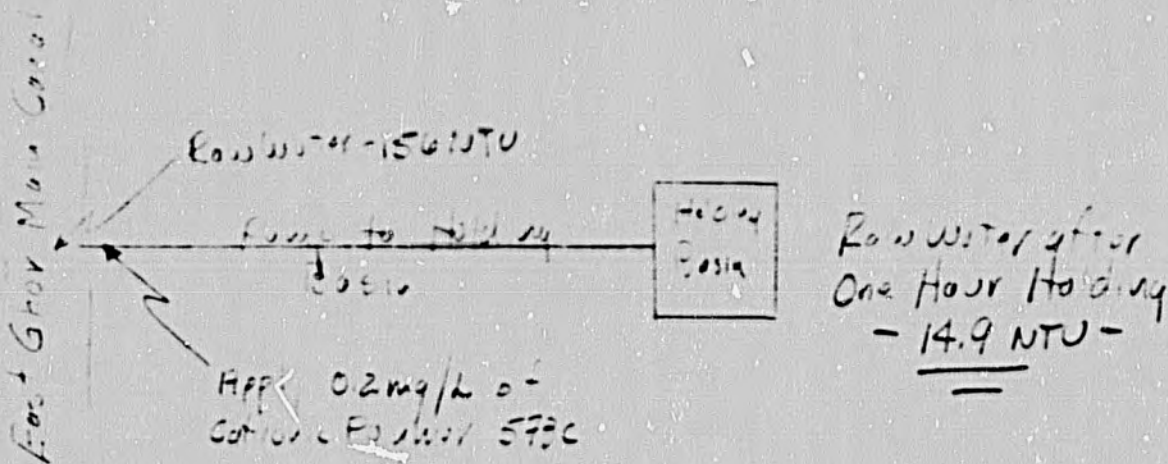 East Ghor Main Canal
Raw Water - 156 NTU
Pump to Holding
Basin
Holding
Basin
Raw Water after
One Hour Holding
- 14.9 NTU -
0.2 mg/L of
Cationic Polymer 573C